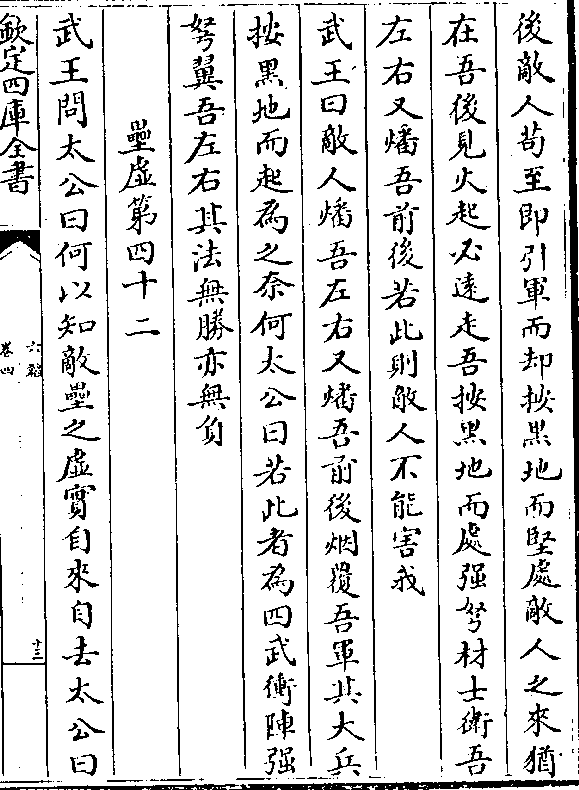 後敵人茍至即引軍而却按黑地而堅處敵人之來猶
在吾後見火起必遠走吾按黑地而處强弩材士衛吾
左右又燔吾前後若此則敵人不能害我
武王曰敵人燔吾左右又燔吾前後烟覆吾軍其大兵
按黑地而起為之奈何太公曰若此者為四武衝陣强
弩翼吾左右其法無勝亦無負
壘虛第四十二
武王問太公曰何以知敵壘之虛實自來自去太公曰
欽定四庫全書
六韜
卷四
十三